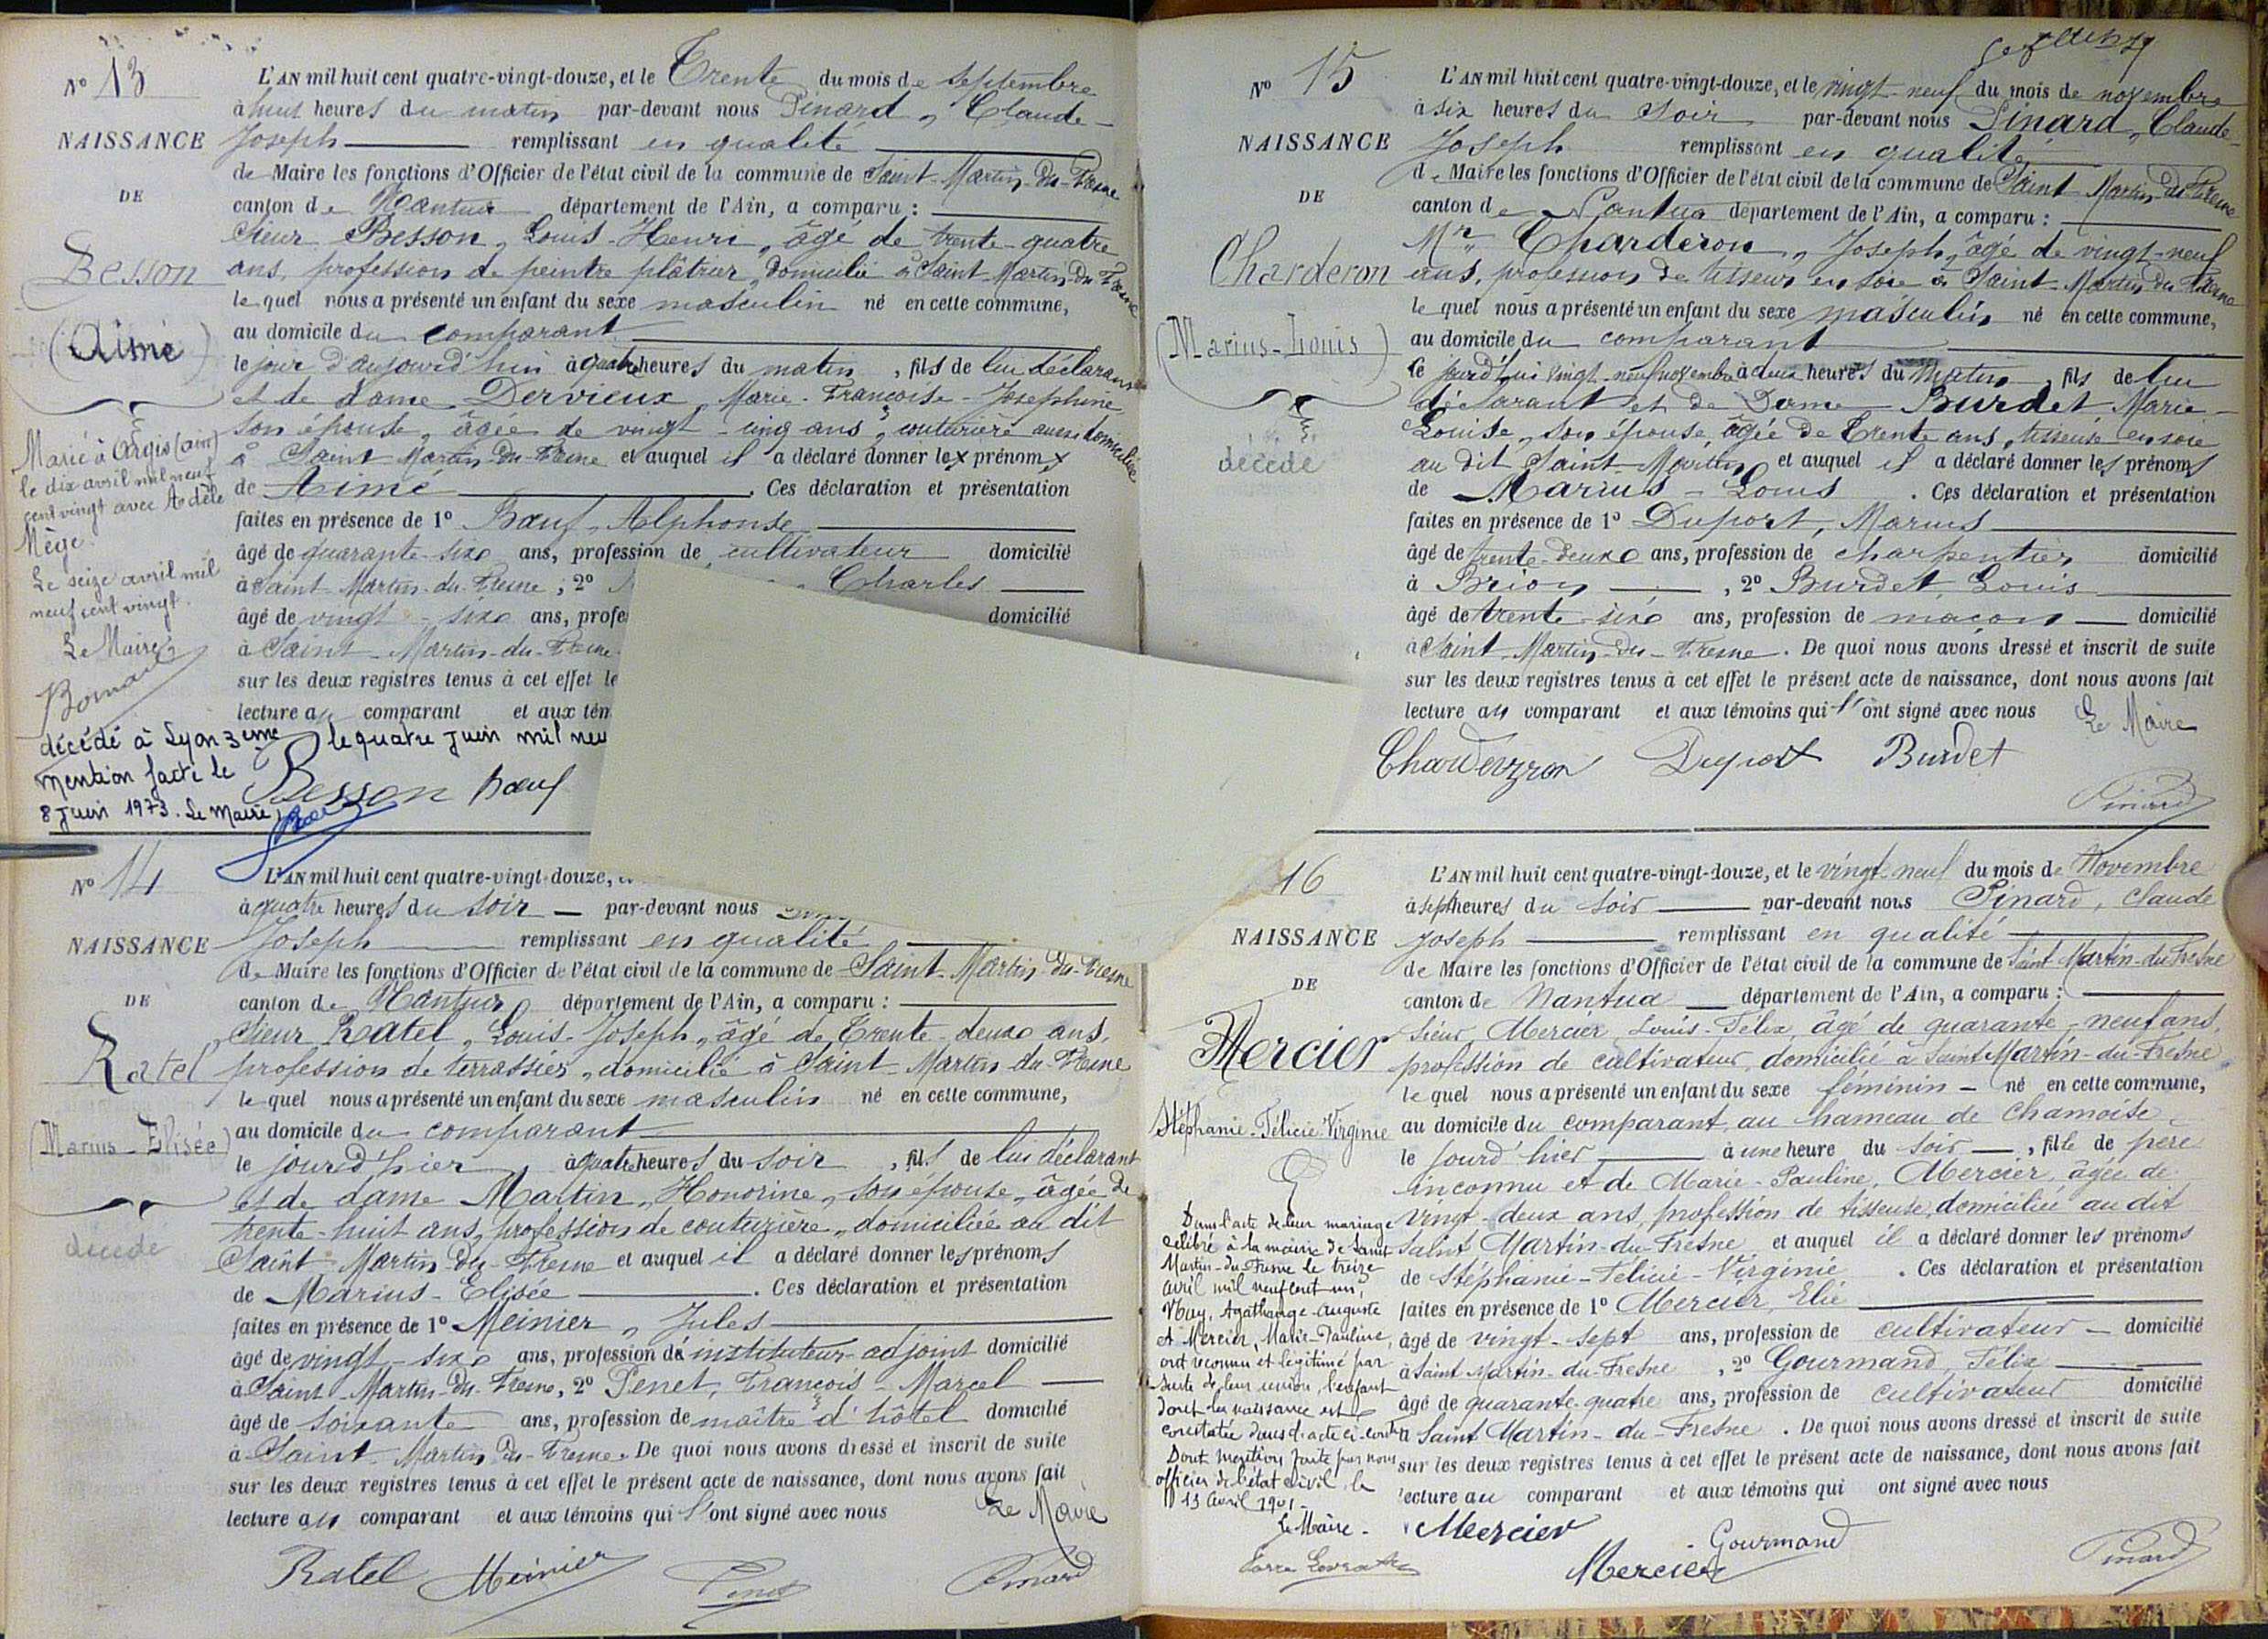 N° 13
NAISSANCE
DE
Besson
(Aimé)
Marié à Argis (ain)
le dix avril mil neuf
cent vingt avec Adèle
Mège.
Le seize avril mil
neuf cent vingt.
Le Maire
décédé à Lyon 3ème le quatre juin mil neu
mention faite le
8 juin 1973. Le Maire,
L'AN mil huit cent quatre-vingt-douze, et le Trente du mois de septembre
à huit heures du matin par-devant nous Pinard, Claude-
Joseph remplissant en qualité
de Maire les fonctions d'Officier de l'état civil de la commune de Saint-Martin-du-Fresne
canton de Nantua département de l'Ain, a comparu :
Sieur Besson, Louis-Henri, âgé de trente-quatre
ans, profession de peintre plâtrier, domicilié à Saint-Martin-du-Fresne
le quel nous a présenté un enfant du sexe masculin né en cette commune,
au domicile du comparant
le jour d'aujourd'hui à quatre heures du matin, fils de lui déclarant
et de dame Dervieux, Marie-Françoise-Josephine,
son épouse, âgée de vingt-cinq ans, couturière aussi domiciliée
à Saint-Martin-du-Fresne et auquel il a déclaré donner le x prénom x
de Aimé . Ces déclaration et présentation
faites en présence de 1° Bœuf, Alphonse
âgé de quarante-six ans, profession de cultivateur domicilié
à Saint-Martin-du-Fresne ; 2° Charles
âgé de vingt-six ans, profe domicilié
à Saint-Martin-du-Fresne.
sur les deux registres tenus à cet effet le
lecture au comparant et aux tém
Besson Bœuf
N° 14
NAISSANCE
DE
Ratel
(Marius-Elisée)
décédé
L'AN mil huit cent quatre-vingt-douze, et
à quatre heures du soir par-devant nous
Joseph remplissant en qualité
de Maire les fonctions d'Officier de l'état civil de la commune de Saint-Martin-du-Fresne
canton de Nantua département de l'Ain, a comparu :
Sieur Ratel, Louis-Joseph, âgé de Trente-deux ans,
profession de terrassier, domicilié à Saint-Martin-du-Fresne
le quel nous a présenté un enfant du sexe masculin né en cette commune,
au domicile du comparant
le jourd'hier à quatre heures du soir, fils de lui déclarant
et de dame Martin, Honorine, son épouse, âgée de
trente-huit ans, profession de couturière, domiciliée au dit
Saint-Martin-du-Fresne et auquel il a déclaré donner les prénoms
de Marius-Elisée . Ces déclaration et présentation
faites en présence de 1° Meinier, Jules
âgé de vingt-six ans, profession de instituteur-adjoint domicilié
à Saint-Martin-du-Fresne, 2° Penet, François-Marcel
âgé de soixante ans, profession de maître d'hôtel domicilié
à Saint-Martin-du-Fresne. De quoi nous avons dressé et inscrit de suite
sur les deux registres tenus à cet effet le présent acte de naissance, dont nous avons fait
lecture au comparant et aux témoins qui l'ont signé avec nous Le Maire
Ratel Meinier Penet Pinard
N° 15
NAISSANCE
DE
Charderon
(Marius-Louis)
décédé
L'AN mil huit cent quatre-vingt-douze, et le vingt-neuf du mois de novembre
à six heures du soir par-devant nous Pinard, Claude-
Joseph remplissant en qualité
de Maire les fonctions d'Officier de l'état civil de la commune de Saint-Martin-du-Fresne
canton de Nantua département de l'Ain, a comparu :
Mr Charderon, Joseph, âgé de vingt-neuf
ans, profession de tisseur en soie à Saint-Martin-du-Fresne
le quel nous a présenté un enfant du sexe masculin né en cette commune,
au domicile du comparant
le jourd'hui vingt-neuf novembre à deux heures du matin, fils de lui
déclarant et de Dame Burdet Marie-
Louise, son épouse, âgée de Trente ans, tisseuse en soie
au dit Saint-Martin et auquel il a déclaré donner les prénoms
de Marius-Louis . Ces déclaration et présentation
faites en présence de 1° Duport, Marius
âgé de trente-deux ans, profession de charpentier domicilié
à Brion , 2° Burdet, Louis
âgé de trente-six ans, profession de maçon domicilié
à Saint-Martin-du-Fresne. De quoi nous avons dressé et inscrit de suite
sur les deux registres tenus à cet effet le présent acte de naissance, dont nous avons fait
lecture au comparant et aux témoins qui l'ont signé avec nous Le Maire
Duport Burdet
Pinard
16
NAISSANCE
DE
Mercier
Stéphanie-Félicie-Virginie
Dans l'acte de leur mariage
célébré à la mairie de Saint
Martin-du-Fresne le treize
avril mil neuf cent un,
Agathange-Auguste
et Mercier, Marie-Pauline,
ont reconnu et légitimé par
suite de leur union, l'enfant
dont la naissance est
constatée dans l'acte ci-contre
Dont mention faite par nous
officier de l'état civil, le
13 avril 1901.
Le Maire.
L'AN mil huit cent quatre-vingt-douze, et le vingt-neuf du mois de Novembre
à sept heures du soir par-devant nous Pinard, Claude
Joseph remplissant en qualité
de Maire les fonctions d'Officier de l'état civil de la commune de Saint-Martin-du-Fresne
canton de Nantua département de l'Ain, a comparu :
sieur Mercier, Louis-Félix, âgé de quarante-neuf ans,
profession de cultivateur, domicilié à Saint Martin-du-Fresne
le quel nous a présenté un enfant du sexe féminin né en cette commune,
au domicile du comparant, au hameau de Chamoise
le jourd'hier à une heure du soir, fille de père
inconnu et de Marie-Pauline, Mercier, âgée de
vingt-deux ans, profession de tisseuse, domiciliée au dit
Saint Martin-du-Fresne et auquel il a déclaré donner les prénoms
de Stéphanie-Félicie-Virginie . Ces déclaration et présentation
faites en présence de 1° Mercier, Elie
âgé de vingt-sept ans, profession de cultivateur domicilié
à Saint Martin-du-Fresne, 2° Gourmand, Félix
âgé de quarante-quatre ans, profession de cultivateur domicilié
à Saint Martin-du-Fresne. De quoi nous avons dressé et inscrit de suite
sur les deux registres tenus à cet effet le présent acte de naissance, dont nous avons fait
lecture au comparant et aux témoins qui ont signé avec nous
Mercier Gourmand
Mercier Pinard